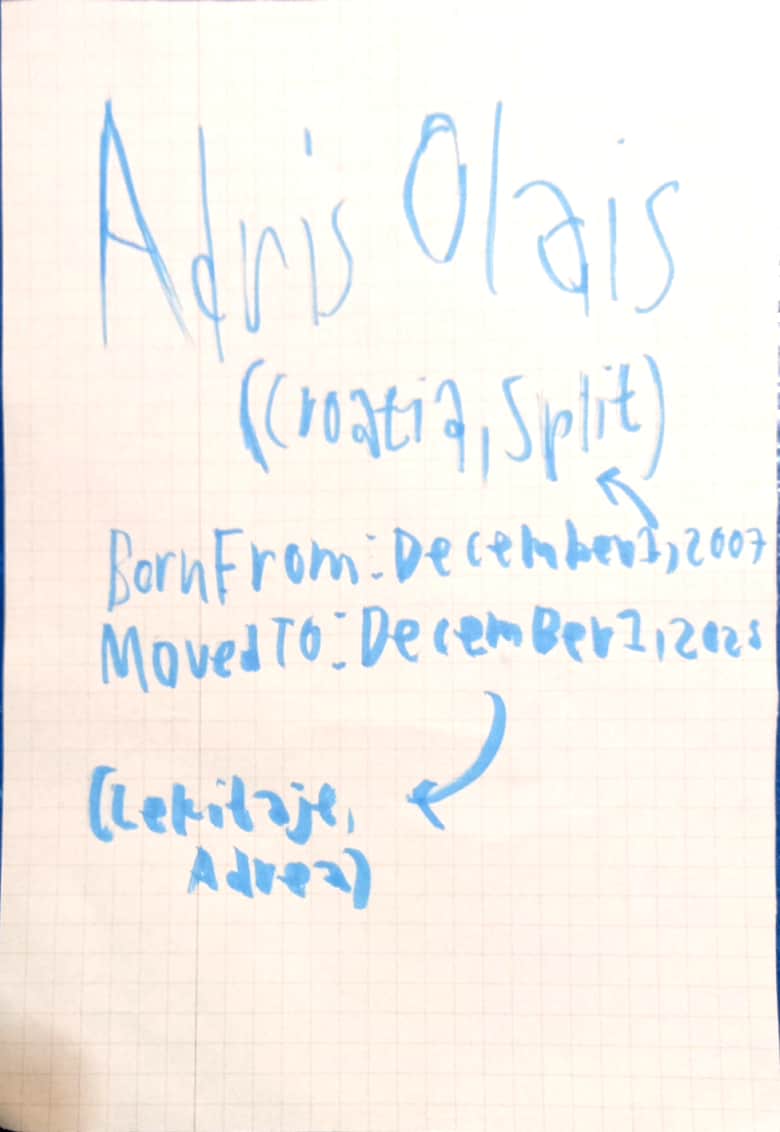 Adris Olais
(Croatia, Split)
Born From: December 1, 2007
Moved To: DecemBer 1, 2025
(Lekitaje,
Adrea)